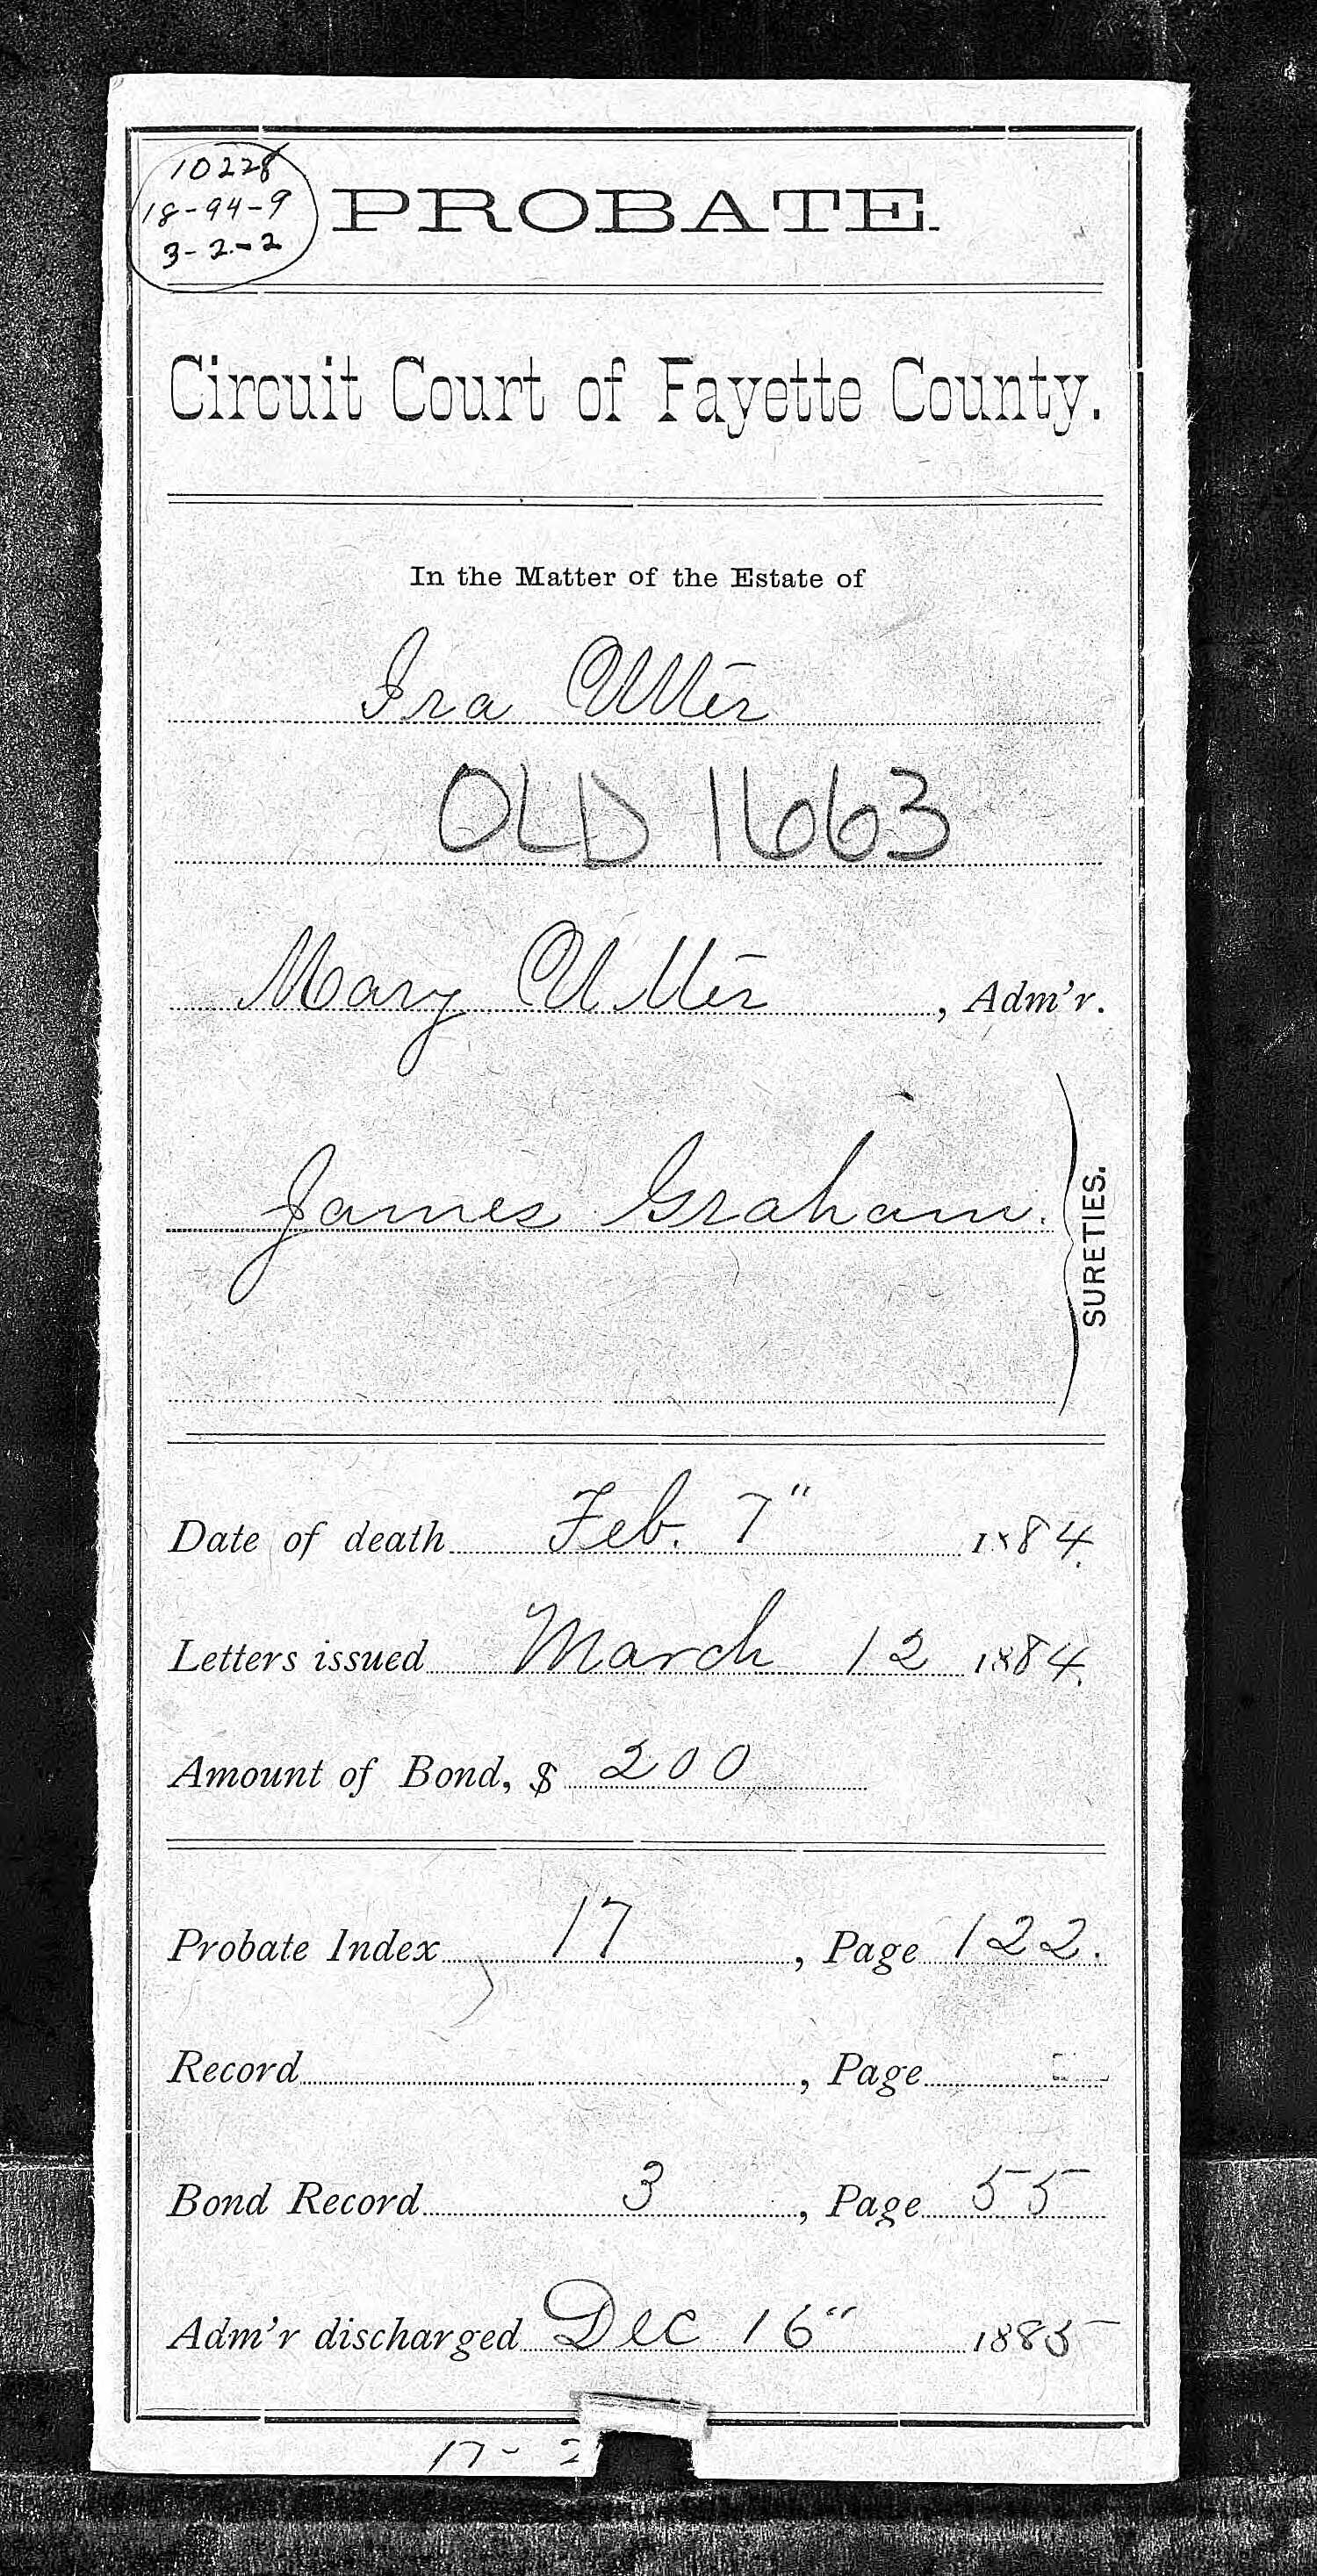 10228
18-94-9
3-2-2
PROBATE.
Circuit Court of Fayette County.
In the Matter of the Estate of
Ira Utter
OLD 1663
Mary Utter, Adm'r.
James Graham.
SURETIES.
Date of death Feb. 7" 1884.
Letters issued March 12 1884.
Amount of Bond, $ 200
Probate Index 17, Page 122.
Record, Page
Bond Record 3, Page 55
Adm'r discharged Dec 16" 1885
17-2